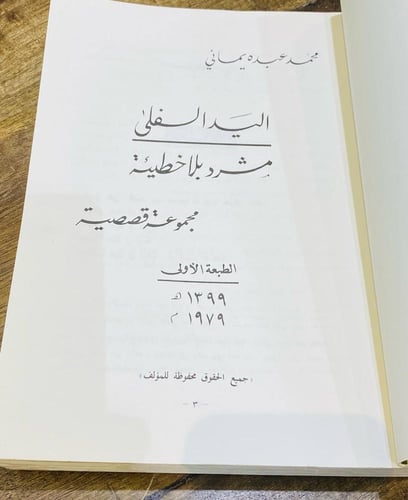 محمد عبده يماني
اليد السفلى
مشرد بلا خطيئة
مجموعة قصصية
الطبعة الأولى
١٣٩٩ هـ
١٩٧٩ م
« جميع الحقوق محفوظة للمؤلف »
- ٣ -